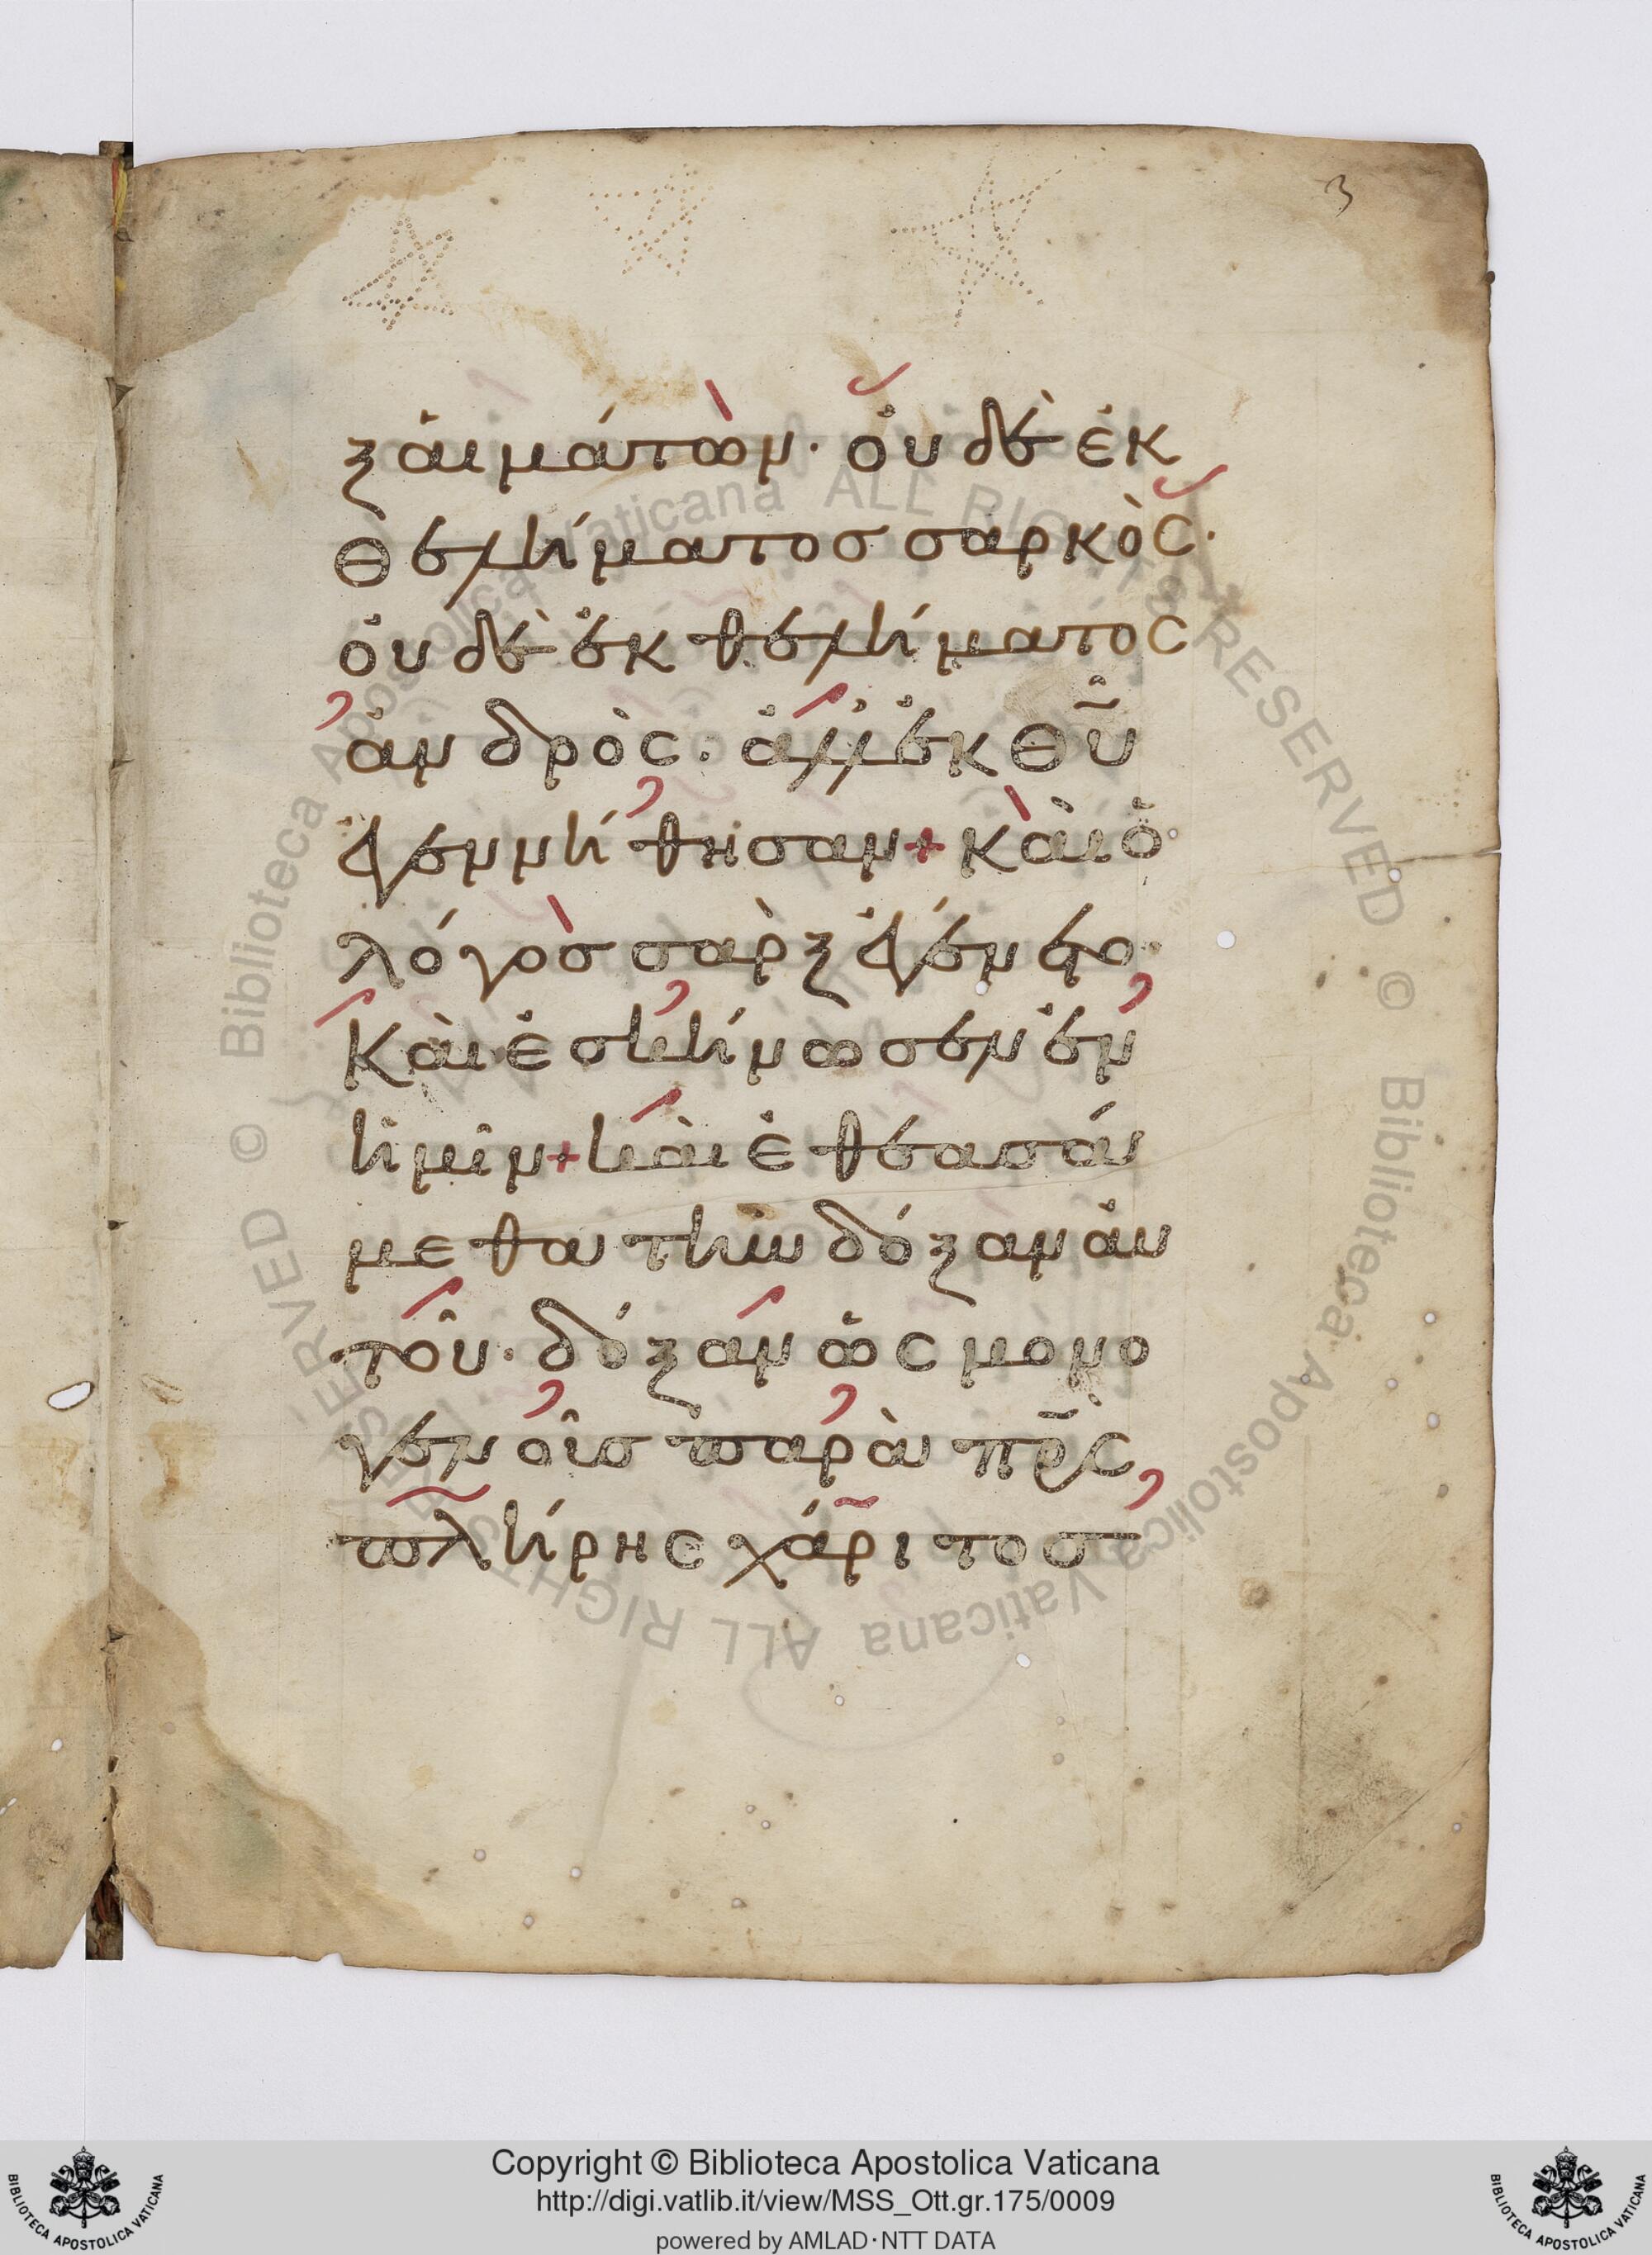 3
ξ αἱμάτων· οὐδὲ ἐκ
θελήματος σαρκὸς·
οὐδὲ ἐκ θελήματος
ἀνδρὸς· ἀλλ' ἐκ θ̅υ̅
ἐγεννήθησαν + καὶ ὁ
λόγος σὰρξ ἐγένετο·
καὶ ἐσκήνωσεν ἐν
ἡμῖν + καὶ ἐθεασά
μεθα τὴν δόξαν αὐ
τοῦ· δόξαν ὡς μονο
γενοῦς παρὰ π̅ρ̅ς̅
πλήρης χάριτος
© Biblioteca Apostolica Vaticana ALL RIGHTS RESERVED
© Biblioteca Apostolica Vaticana ALL RIGHTS RESERVED
BIBLIOTECA APOSTOLICA VATICANA
Copyright © Biblioteca Apostolica Vaticana
http://digi.vatlib.it/view/MSS_Ott.gr.175/0009
powered by AMLAD·NTT DATA
BIBLIOTECA APOSTOLICA VATICANA